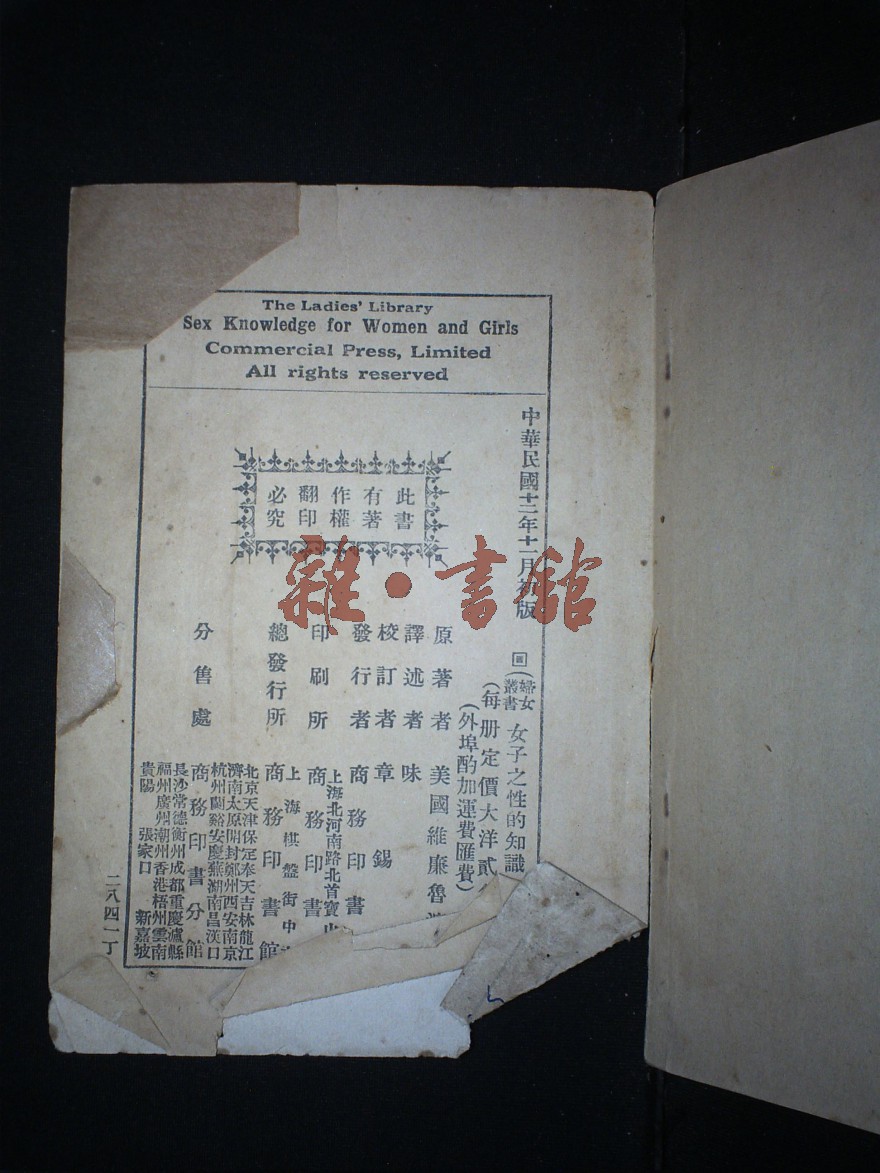 The Ladies' Library
Sex Knowledge for Women and Girls
Commercial Press, Limited
All rights reserved
中華民國十二年十一月初版
婦女叢書
女子之性的知識
(每册定價大洋貳
(外埠酌加運費匯費)
此書
有著
作權
翻印
必究
原著者 美國維廉魯
譯述者 味
校訂者 章錫
發行者 商務印書
印刷所 上海北河南路北首寶山 商務印書
總發行所 上海棋盤街中 商務印書館
分售處 商務印書分館
北京天津保定奉天吉林龍江
濟南太原開封鄭州西安南京
杭州蘭谿安慶蕪湖南昌漢口
長沙常德衡州成都重慶瀘縣
福州廣州潮州香港梧州雲南
貴陽 張家口 新嘉坡
二八四一丁
雜·書館